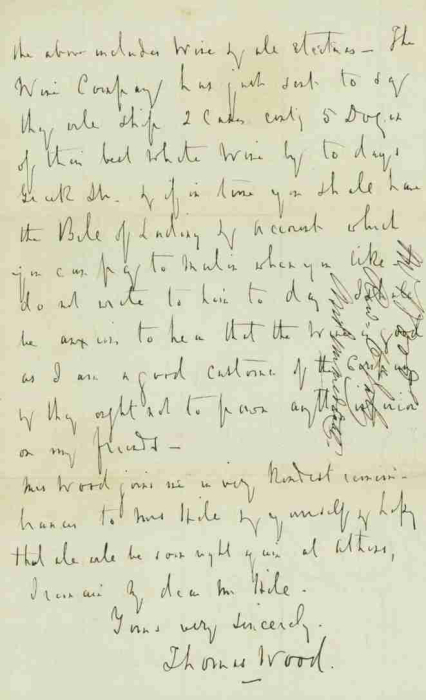 the above includes Wine & all Electros – The
Wine Company has just sent to say
they will ship 2 Cases containg 5 Dozen
of their best White Wine by to days
Greek St. & if in time you shall have
the Bill of Lading & account which
you can pay to when you like
do not write to him to day I shall
be anxious to hear that the Wine is good
as I am a good customer of the
& they ought not to pawn anything
on my friends –
Mrs Wood joins me in very kindest remem-
brances to Mrs Hill & yourself & hopg
that all will be soon right again at Athens,
I remain My dear Mr Hill.
Yours very sincerely.
Thomas Wood.